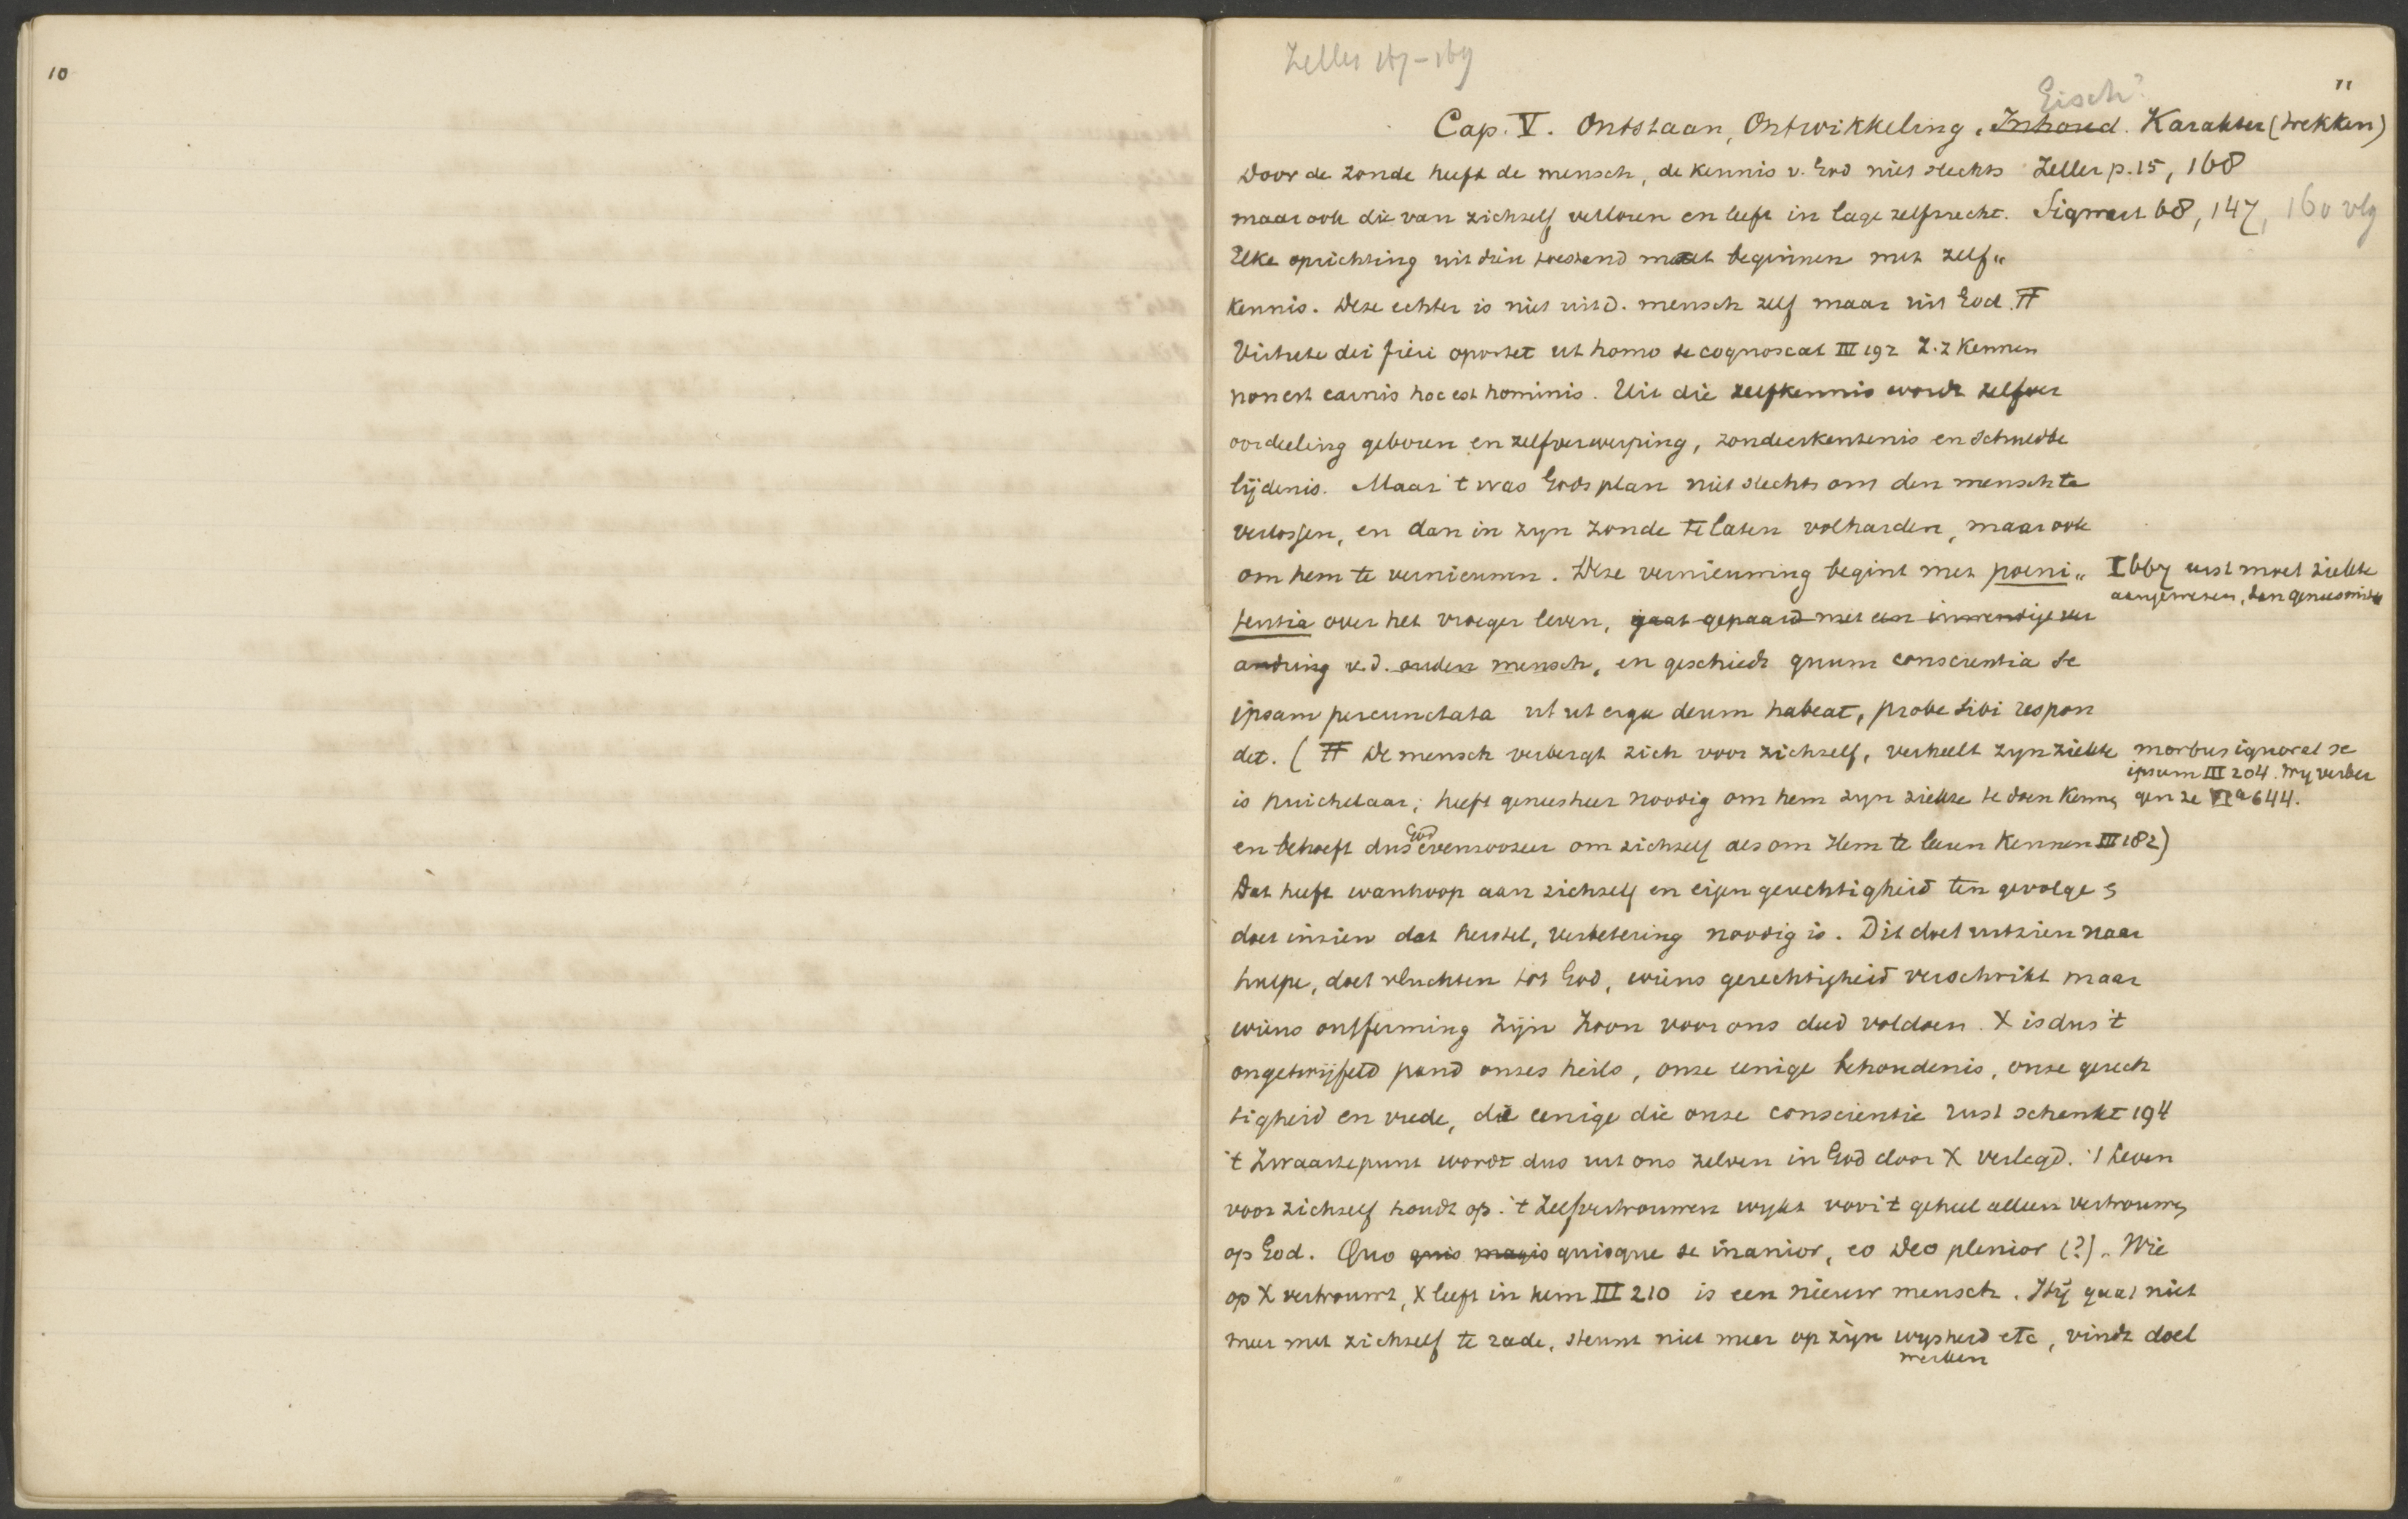 10
Zeller 167-169
11
Eisch?
Cap. V. Ontstaan, Ontwikkeling, Inhoud. Karakter (trekken)
Door de zonde heeft de mensch, de kennis v. God niet slechts Zeller p. 15, 168
maar ook die van zichzelf verloren en leeft in lage zelfzucht. Sigwart 68, 147, 160 vlg
Elke oprichting uit dien toestand moet beginnen met zelf„
kennis. Deze echter is niet uit d. mensch zelf maar uit God. #
Virtute dei fieri oportet ut homo se cognoscat III 192 Z.z kennen
non est carnis hoc est hominis. Uit die zelfkennis wordt zelfver
oordeeling geboren en zelfverwerping, zondeerkentenis en schuldbe
lijdenis. Maar 't was Gods plan niet slechts om den mensch te
verlossen, en dan in zyn zonde te laten volharden, maar ook
om hem te vernieuwen. Deze vernieuwing begint met poeni„
I 667 eerst moet ziekte
aangewezen,
tentia over het vroeger leven, gaat gepaard met een inwendige ver
andring v.d. ouden mensch, en geschiedt quum conscientia se
ipsam percunctata ut ut erga deum habeat, probe sibi respon
det. ( # De mensch verbergt zich voor zichzelf, verheelt zyn ziekte
morbus ignorat se
ipsum III 204. Wy verber
is huichelaar; heeft geneesheer noodig om hem zyn ziekte te doen kennen
gen ze VI a 644.
en behoeft dus God evenzoozeer om zichzelf als om Hem te leeren kennen III 182)
Dat heeft wanhoop aan zichzelf en eigen gerechtigheid ten gevolge &
doet inzien dat herstel, verbetering noodig is. Dit doet uitzien naar
hulpe, doet vluchten tot God, wiens gerechtigheid verschrikt maar
wiens ontferming Zijn Zoon voor ons deed voldoen. X is dus 't
ongetwijfeld pand onzes heils, onze eenige behoudenis, onze gerech
tigheid en vrede, die eenige die onze conscientie rust schenkt 194
't Zwaartepunt wordt dus uit ons zelven in God door X verlegd. 't Leven
voor zichzelf houdt op. 't Zelfvertrouwen wykt voor 't geheel alleen vertrouwen
op God. Quo quis magis quisque se inanior, eo Deo plenior (?). Wie
op X vertrouwt, X leeft in hem III 210 is een nieuw mensch. Hij gaat niet
meer met zichzelf te rade, steunt niet meer op zijn wysheid etc, vindt doel
werken